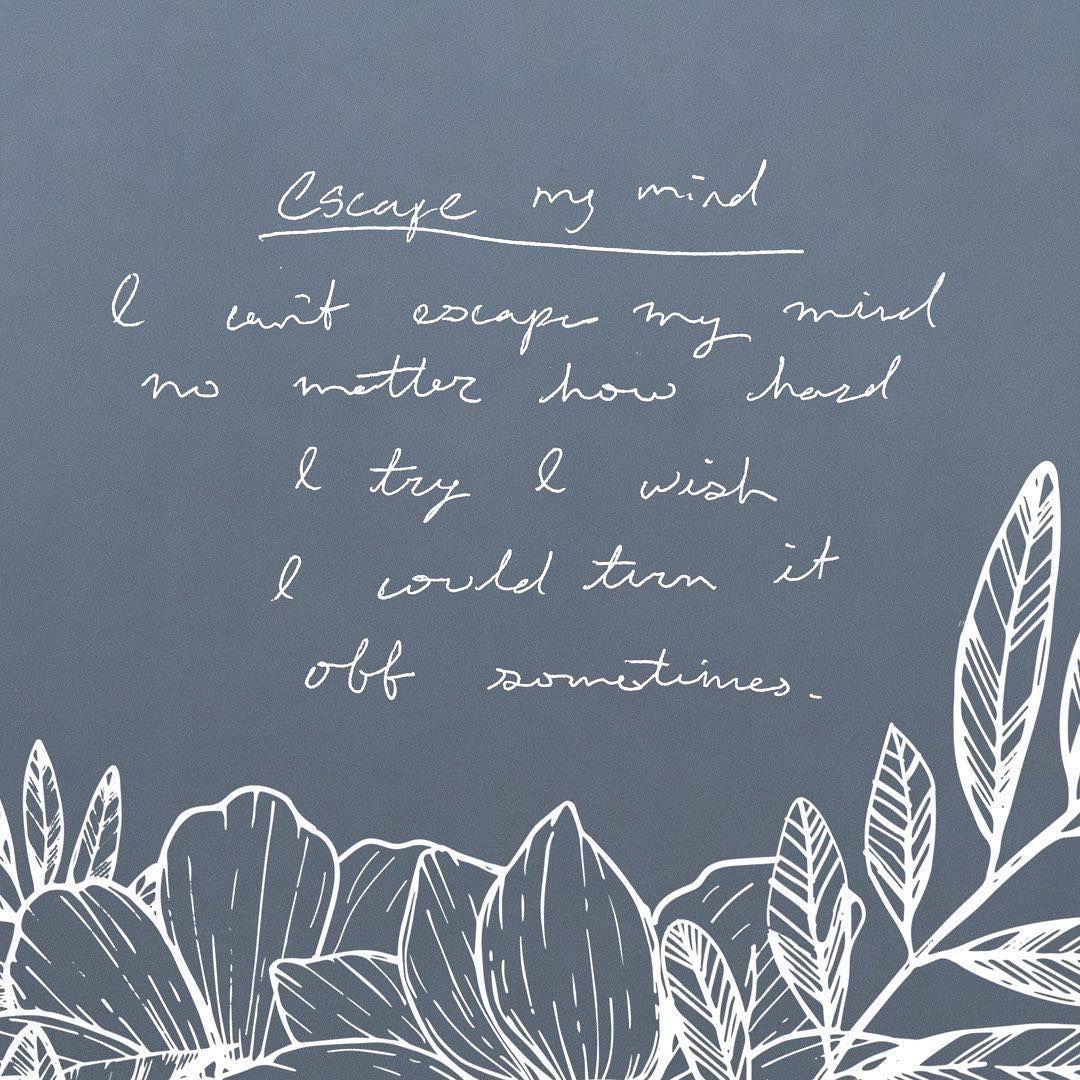 Escape my mind
I can't escape my mind
no matter how hard
I try I wish
I could turn it
off sometimes.